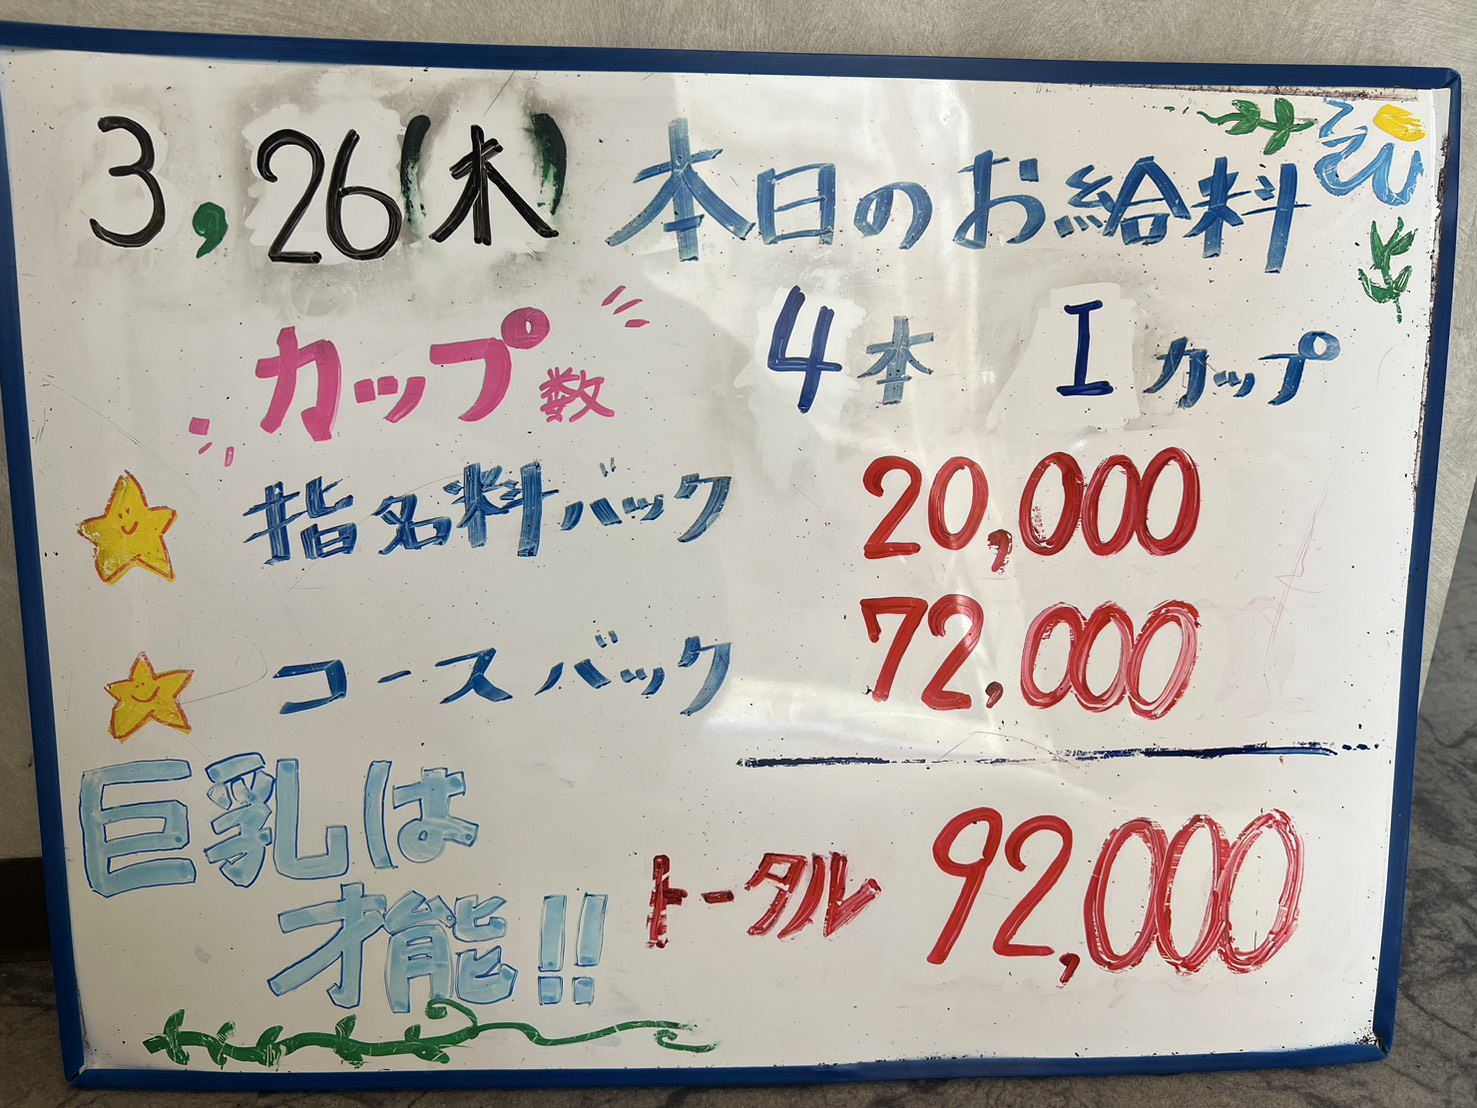 3,26(木) 本日のお給料
カップ数 4本 Iカップ
指名料バック 20,000
コースバック 72,000
巨乳は
才能!!
トータル 92,000